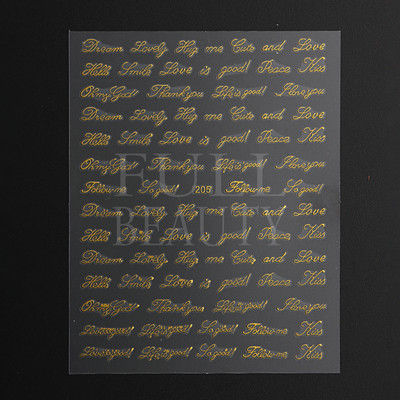 Dream Lovely Hug me Cute and Love
Hello Smile Love is good! Peace Kiss
Ohmy God! Thank you Life is good! I love you
Dream Lovely Hug me Cute and Love
Hello Smile Love is good! Peace Kiss
Ohmy God! Thank you Life is good! I love you
FULL
Follow me So good! 209 Follow me So good!
Dream Lovely Hug me Cute and Love
BEAUTY
Hello Smile Love is good! Peace Kiss
Dream Lovely Hug me Cute and Love
Hello Smile Love is good! Peace Kiss
Ohmy God! Thank you Life is good! I love you
Life is good! So good! Follow me Kiss
Life is good! So good! Follow me Kiss